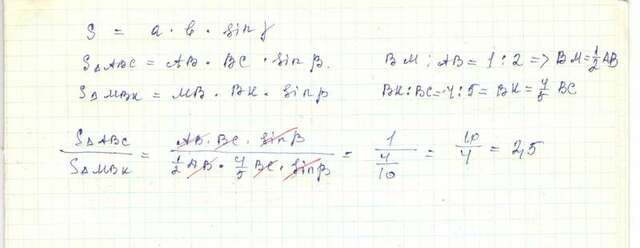 S = a · b · sin γ
S△ABC = AB · BC · sin β. BM : AB = 1 : 2 => BM = 1/2 AB
S△MBK = MB · BK · sin β BK : BC = 4 : 5 = BK = 4/5 BC
S△ABC / S△MBK = AB · BC · sin β / 1/2 AB · 4/5 BC · sin β = 1 / 4/10 = 10/4 = 2,5